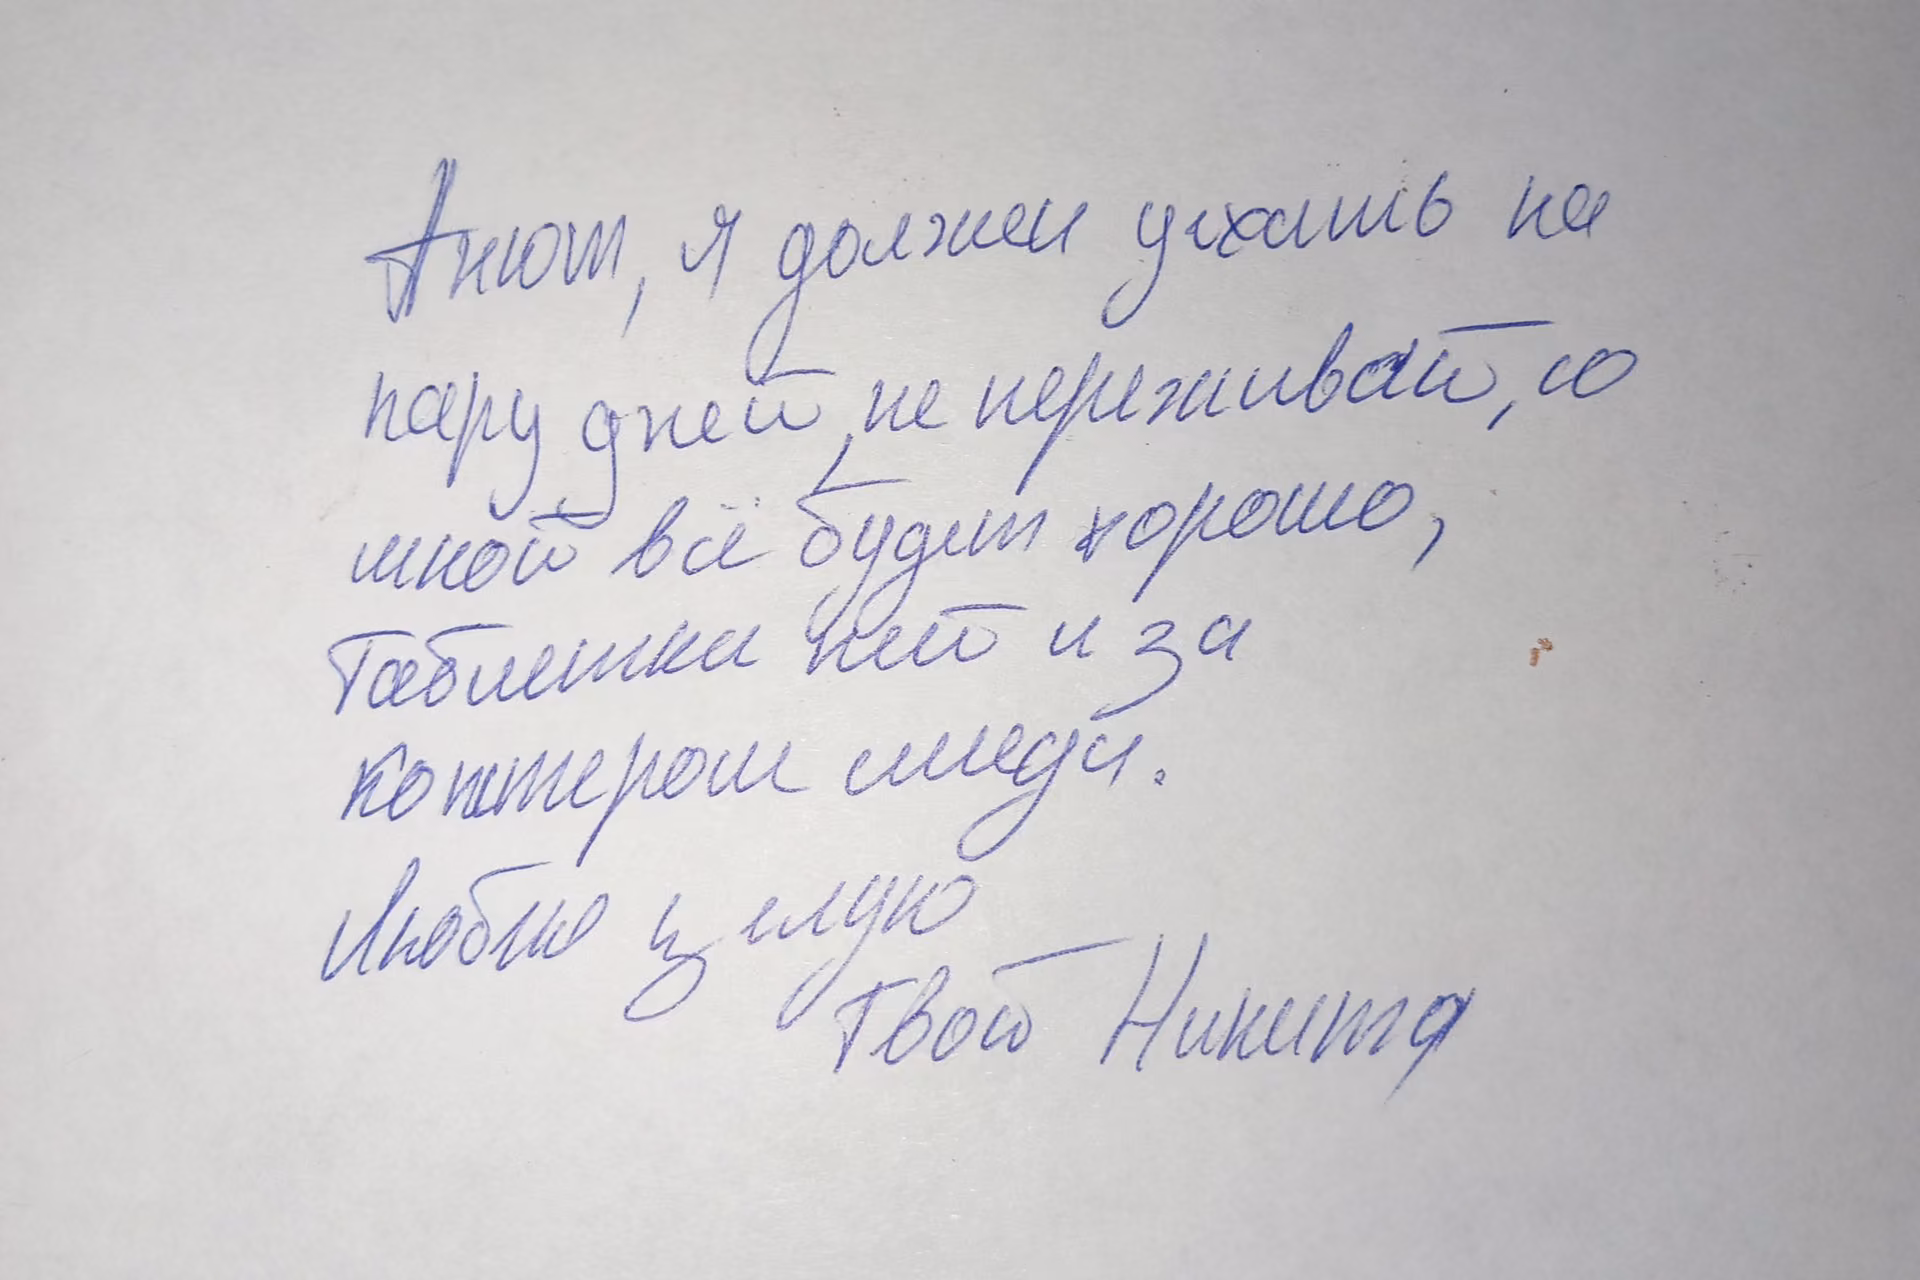 Анют, я должен уехать на
пару дней, не переживай, со
мной всё будет хорошо,
Таблетки пей и за
контером следи.
Люблю целую
Твой Никита